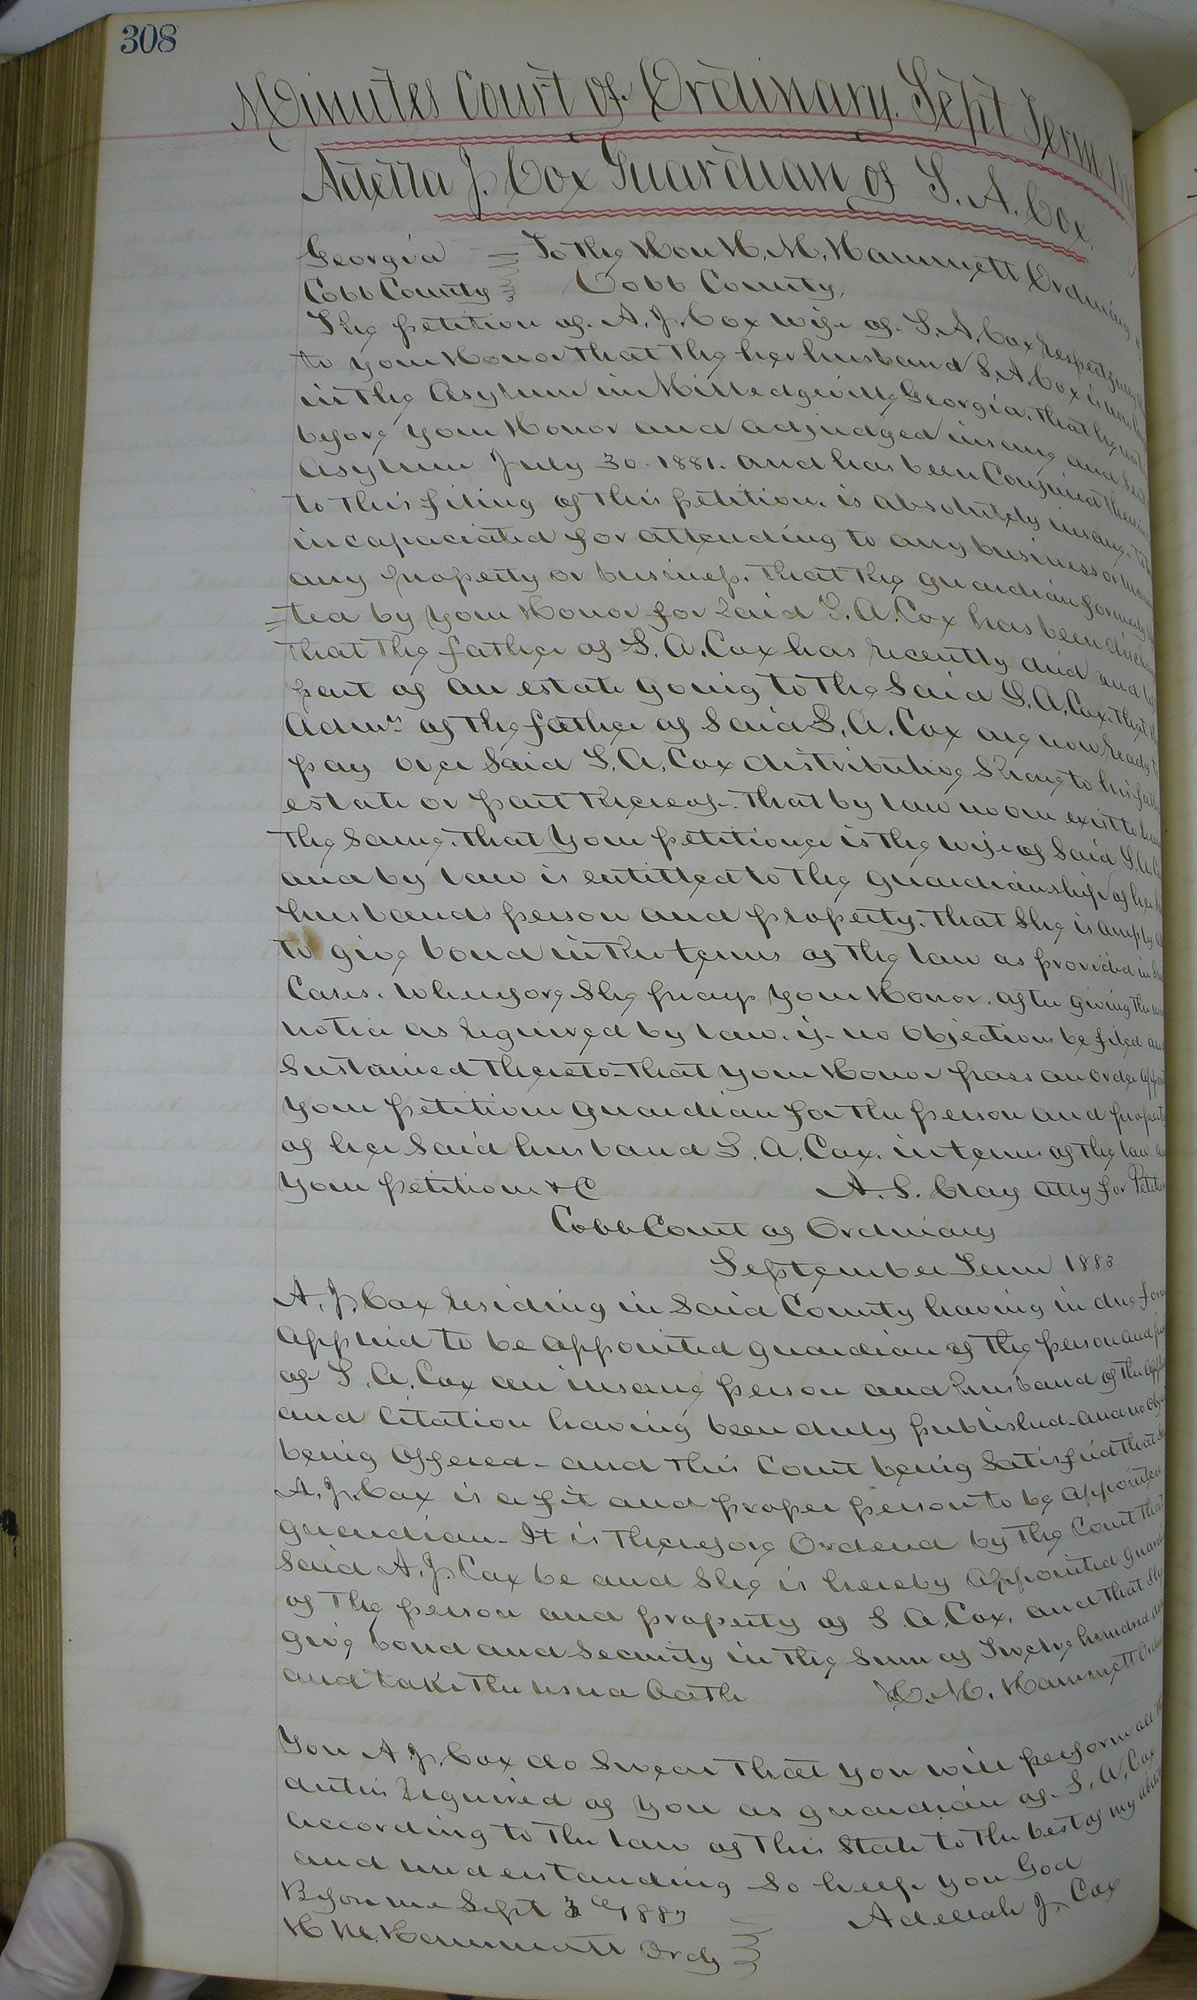 308
Minutes Court of Ordinary. Sept Term
Adella J. Cox Guardian of S. A. Cox.
Georgia To the Hon H. M. Hammett Ordinary
Cobb County Cobb County,
The petition of A. J. Cox wife of S. A. Cox respectfully
to your Honor that the her husband S. A. Cox is now
in the Asylum in Milledgeville Georgia, that he
before your Honor and adjudged insane and
Asylum July 30. 1881. and has been Confined therein
to this filing of this petition. is absolutely insane.
incapaciated for attending to any business or
any property or business. That the guardian formerly
=ted by your Honor for Said S. A. Cox has been
that the father of S. A. Cox has recently died and
part of an estate going to the Said S. A. Cox. that
Admrs of the father of Said S. A. Cox are now ready
pay over Said S. A. Cox distributive Share to his
estate or part thereof. That by law no one exist to
the Same. that Your petitioner is the wife of Said S. A.
and by law is entitled to the guardianship of her
husbands person and property. that She is amply
to give bond in the terms of the law as provided in
Cases. Wherefore She prays your Honor. after giving the
notice as required by law. if no Objections be filed and
Sustained thereto- that your Honor pass an order
your petitioner guardian for the person and property
of her Said husband S. A. Cox. in terms of the law
Your petitioner &C A. S. Clay Atty for
Cobb Court of Ordinary
September Term 1883
A. J. Cox residing in Said County having in due form
applied to be appointed guardian of the person and
of S. A. Cox an insane person and husband of the
and Citation having been duly published- and no
being Offered- and this Court being Satisfied that
A. J. Cox is a fit and proper person to be appointed
guardian- It is Therefore Ordered by the Court that
Said A. J. Cox be and She is hereby Appointed
of the person and property of S. A. Cox. and that She
give bond and Security in the Sum of Twelve hundred
and take the usua Oath H. M. Hammett
You A J. Cox do Swear that you will perform all
duties required of you as guardian of S. A. Cox
according to the law of this State to the best of my
and understanding So help you God
Before me Sept 3 1883 Adellah J. Cox
H M. Hammett Ordy